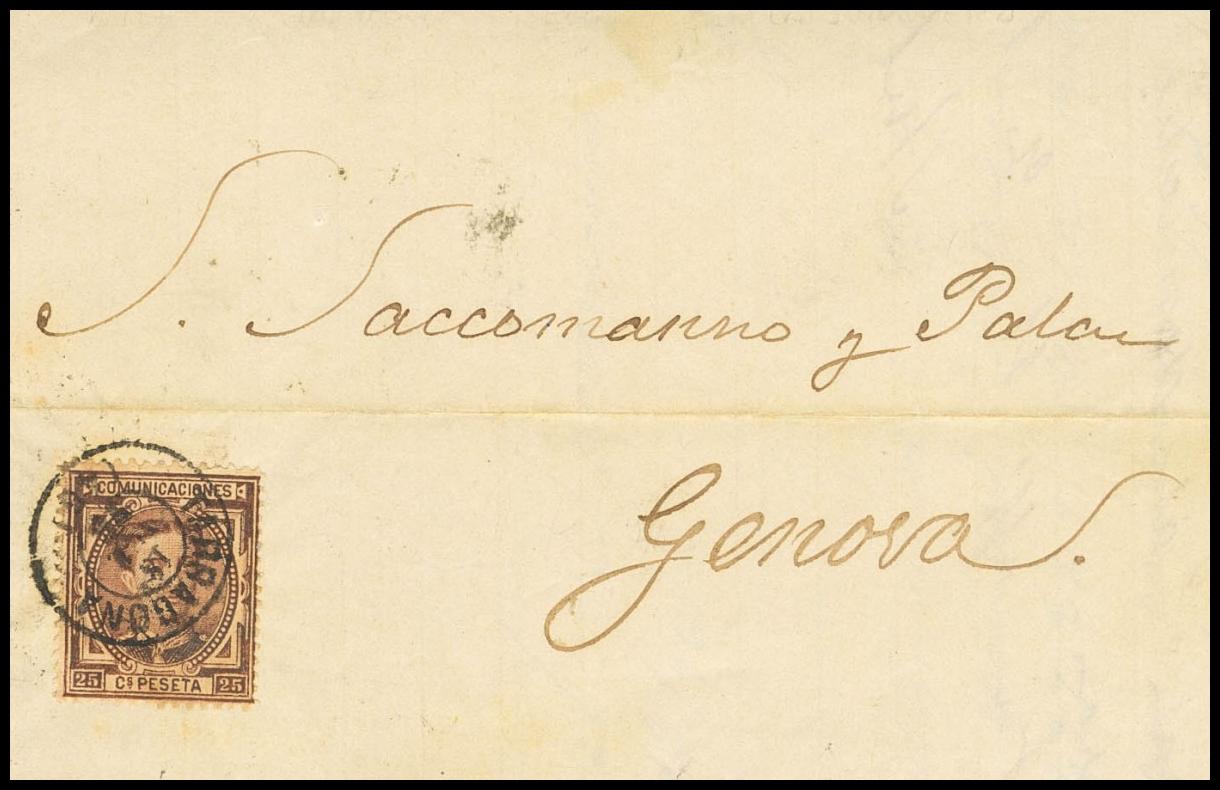 S. Saccomanno y Palau
Genova.
COMUNICACIONES
TARRAGONA
25 Cs PESETA 25